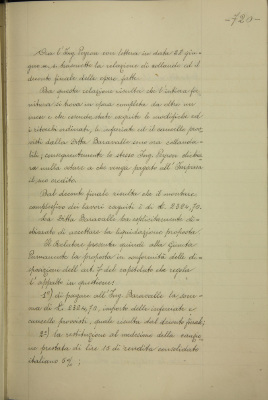 -720-
Che l'Ing. Pignone con lettera in data 28 giu-
gno a. c. trasmette la relazione di collaudo ed il
conto finale delle opere fatte.
Da questa relazione risulta che l'intera for-
nitura si trova in opera completa da oltre un
mese e che constatate eseguite le modifiche ed
i ritocchi ordinati, le inferriate ed il cancello prov-
visti dalla Ditta Baravalle sono ora collauda-
bili; conseguentemente lo stesso Ing. dichia-
ra nulla ostare a che venga pagato all'Impresa
il suo credito.
Dal conto finale risulta che il montare
complessivo dei lavori eseguiti è di £. 2304,70.
La Ditta Baravalle ha esplicitamente di-
chiarato di accettare la liquidazione proposta.
Il Relatore presenta quindi alla Giunta
Permanente la proposta in conformità delle di-
sposizioni dell'art. 7 del capitolato che regola
l'appalto in questione:
1°) di pagare all'Ing. Baravalle la som-
ma di £. 2304,70, importo delle inferriate e
cancello provvisti, quale risulta dal conto finale;
2°) la restituzione al medesimo della cauzio-
ne prestata di lire 15 di rendita consolidato
italiano 5%;